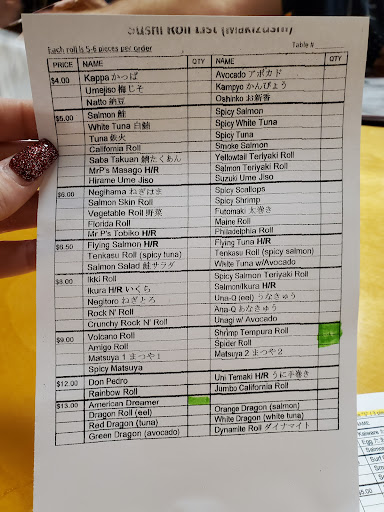 Sushi Roll List (Makizushi)
Each roll is 5-6 pieces per order
Table #
PRICE NAME QTY NAME QTY
$4.00 Kappa かっぱ Avocado アボカド
Umejiso 梅じそ Kampyo かんぴょう
Natto 納豆 Oshinko お新香
$5.00 Salmon 鮭 Spicy Salmon
White Tuna 白鮪 Spicy White Tuna
Tuna 鉄火 Spicy Tuna
California Roll Smoke Salmon
Saba Takuan 鯖たくあん Yellowtail Teriyaki Roll
MrP's Masago H/R Salmon Teriyaki Roll
Hirame Ume Jiso Suzuki Ume Jiso
$6.00 Negihama ねぎはま Spicy Scallops
Salmon Skin Roll Spicy Shrimp
Vegetable Roll 野菜 Futomaki 太巻き
Florida Roll Maine Roll
Mr P's Tobiko H/R Philadelphia Roll
$6.50 Flying Salmon H/R Flying Tuna H/R
Tenkasu Roll (spicy tuna) Tenkasu Roll (spicy salmon)
Salmon Salad 鮭サラダ White Tuna w/Avocado
$8.00 Ikki Roll Spicy Salmon Teriyaki Roll
Ikura H/R いくら Salmon/Ikura H/R
Negitoro ねぎとろ Una-Q (eel) うなきゅう
Rock N' Roll Ana-Q あなきゅう
Crunchy Rock N' Roll Unagi w/ Avocado
$9.00 Volcano Roll Shrimp Tempura Roll
Amigo Roll Spider Roll
Matsuya 1 まつや1 Matsuya 2 まつや2
Spicy Matsuya
$12.00 Don Pedro Uni Temaki H/R うに手巻き
Rainbow Roll Jumbo California Roll
$13.00 American Dreamer
Dragon Roll (eel) Orange Dragon (salmon)
Red Dragon (tuna) White Dragon (white tuna)
Green Dragon (avocado) Dynamite Roll ダイナマイト
NAME